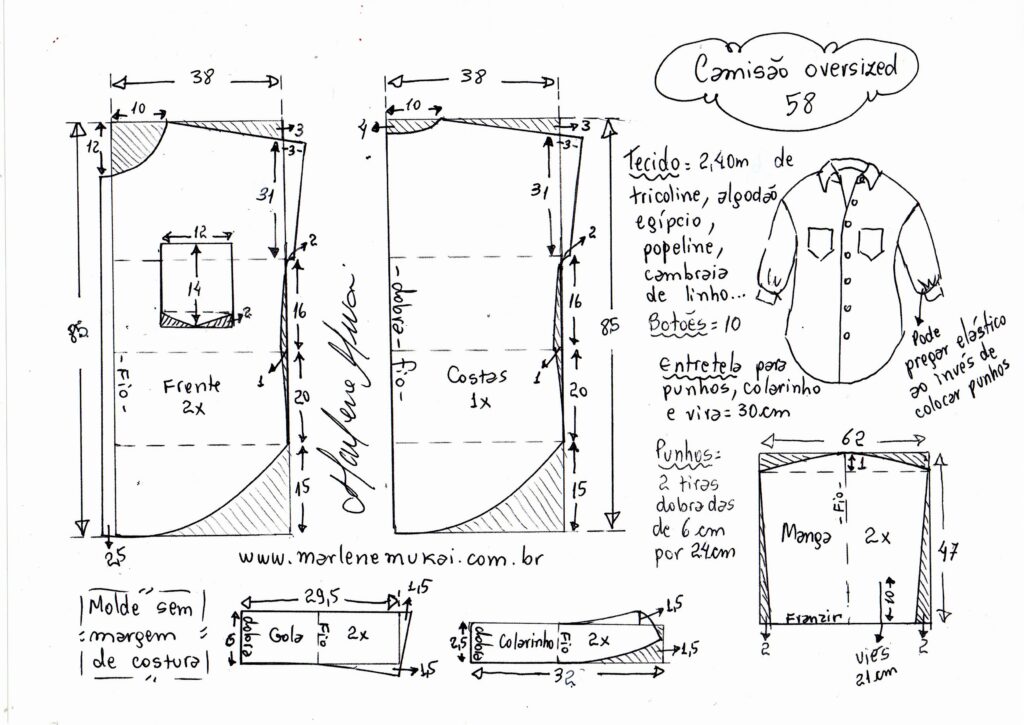 Camisão oversized
58
38
10
12
3
3
31
2
16
1
20
15
85
12
14
2
-Fio-
Frente
2x
2,5
38
10
4
3
3
31
2
16
1
20
15
85
-dobra-fio-
Costas
1x
Marlene Mukai
Tecido= 2,40m de
tricoline, algodão
egípcio,
popeline,
cambraia
de linho...
Botões=10
Entretela para
punhos, colarinho
e vira=30cm
Punhos=
2 tiras
dobradas
de 6cm
por 24cm
Pode
pregar elástico
ao invés de
colocar punhos
62
1
-Fio-
Manga 2x
47
10
Franzir
2
2
viés
21cm
www.marlenemukai.com.br
Molde sem
margem
de costura
29,5
1,5
6
dobra
Gola
Fio
2x
1,5
1,5
2,5
dobra
Colarinho
Fio
2x
1,5
32